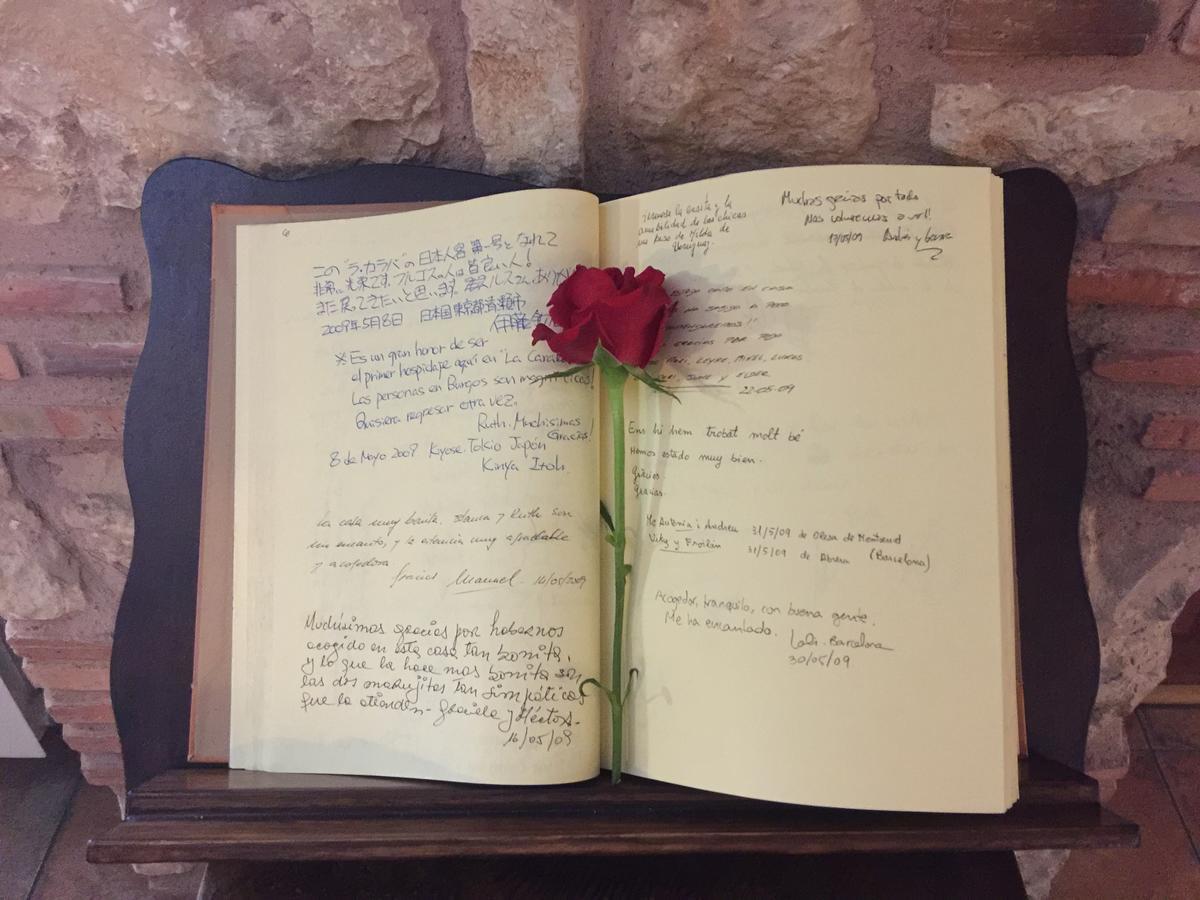 この"ラ・カラバ"の日本人客第一号となれて
非常に光栄です。ブルゴスの人は皆良い人!
また戻ってきたいと思います。ルスさん、ありが
2009年5月8日 日本国東京都清瀬市
伊藤
※ Es un gran honor de ser
el primer hospidaje aquí en "La Cara
Las personas en Burgos son magníficas!
Quisiera regresar otra vez.
Ruth. Muchisimas
Gracias!
8 de Mayo 2009 Kiyose. Tokio Japón
Kinya Itoh.
La casa muy bonita. y Ruth son
un encanto, y la atencia muy agradable
y acojedora
Gracias Manuel - 16/05/2009
Muchísimas gracias por habernos
acogido en esta casa tan bonita,
y lo que la hace mas bonita son
las dos marujitas tan simpáticas
que la atienden - Graciela y Héctor -
16/05/09
la visita y la
amabilidad de las chicas
Muchas gracias por todo
Nos volveremos a ver!
17/05/09
en casa
Gracias por todo
Leyre, Mikel, Lukas
y Eider
22-05-09
Ens hi hem trobat molt bé
Hemos estado muy bien.
Gràcies.
Gracias.
Mª Antonia i Andreu 31/5/09 de Olesa de Montserrat
Viky y Froilán 31/5/09 de Abrera (Barcelona)
Acogedor, tranquilo, con buena gente.
Me ha encantado.
Loli. Barcelona
30/05/09